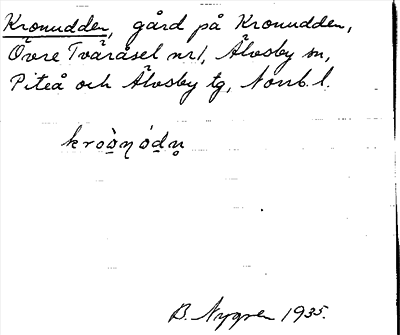 Kronudden, gård på Kronudden,
Övre Tväråsel nr 1, Älvsby sn,
Piteå och Älvsby tg, Norrb. l.
B. Nygren 1935.